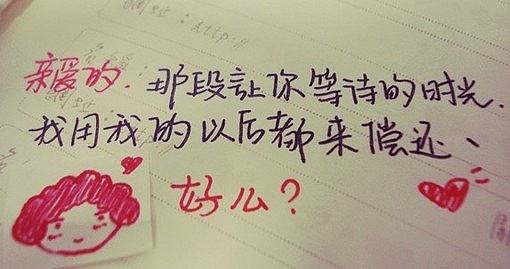 亲爱的.那段让你等待的时光.
我用我的以后都来偿还、
好么?